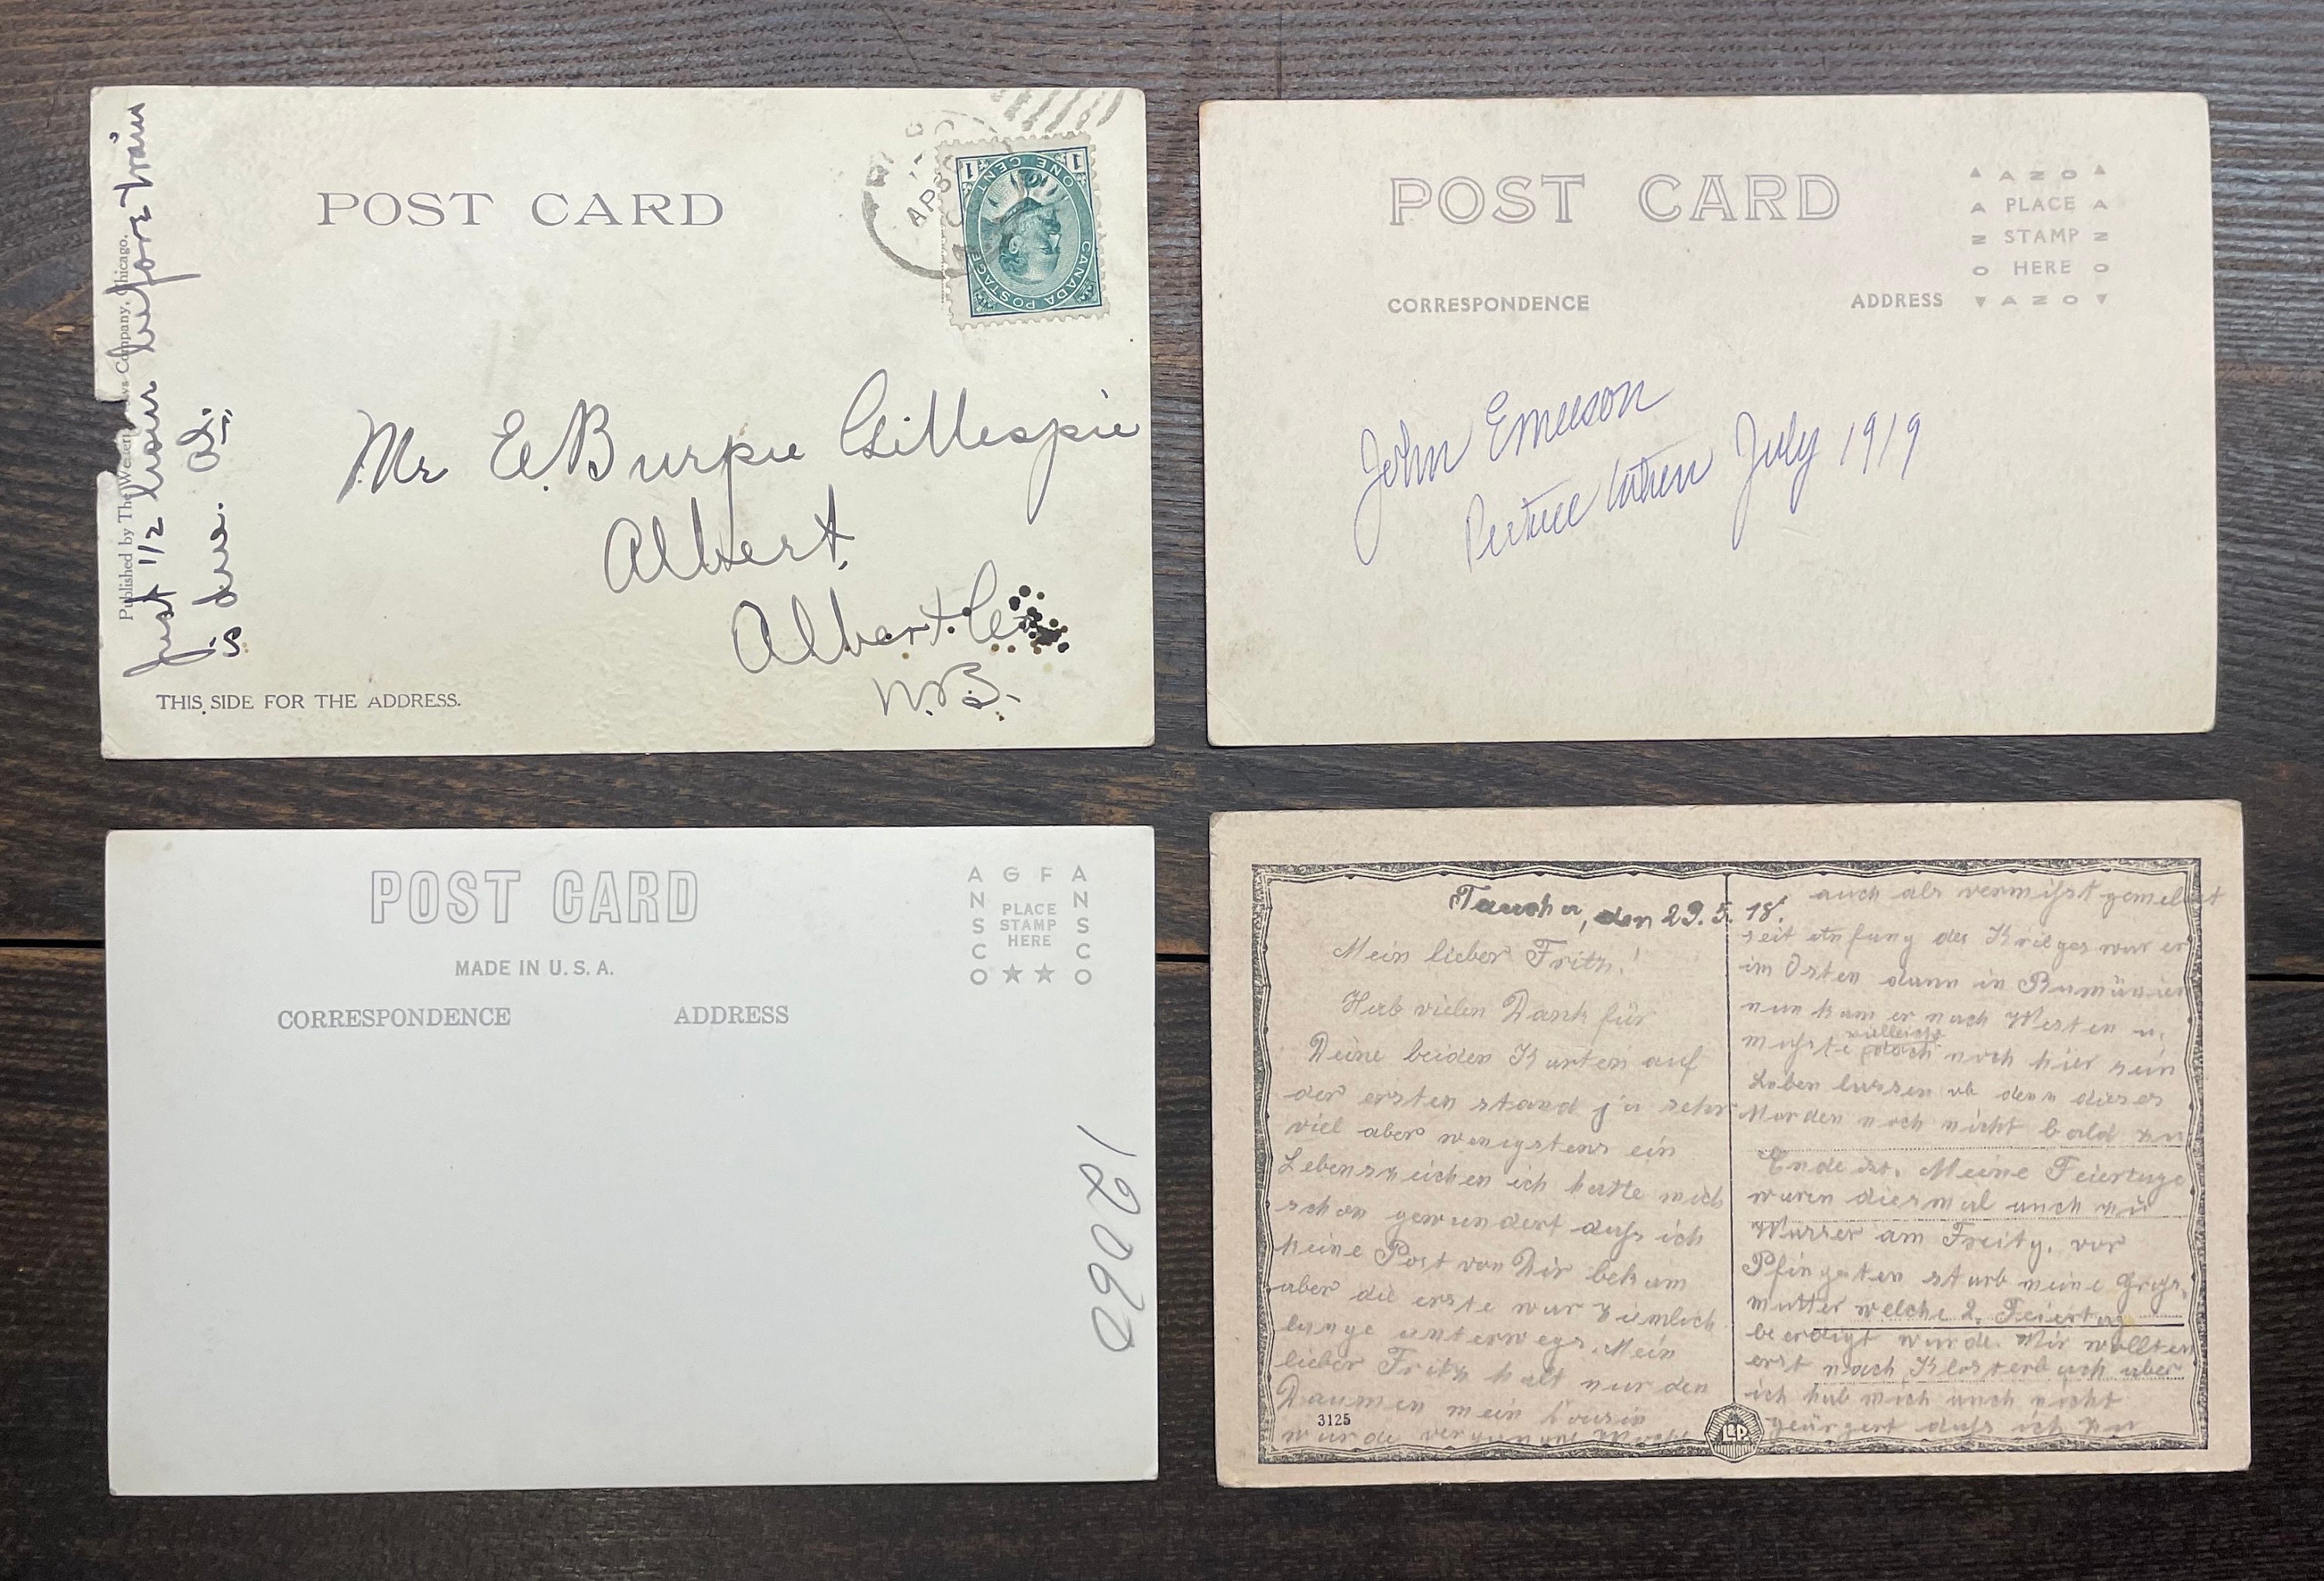 POST CARD
CANADA POSTAGE
ONE CENT
1 1
AP 8
Mr E. Burpee Gillespie
Albert,
Albert Co
N.B.
THIS SIDE FOR THE ADDRESS.
Published by The Western News Company, Chicago.
Just 1/2 hour before train
is due.
POST CARD
AZO
PLACE
STAMP
HERE
AZO
CORRESPONDENCE ADDRESS
John Emerson
Picture taken July 1919
POST CARD
MADE IN U.S.A.
CORRESPONDENCE ADDRESS
AGFA
ANSCO
PLACE
STAMP
HERE
ANSCO
12060
Taucha, den 29.5.18.
Mein lieber Fritz!
Hab vielen Dank für
Deine beiden Karten auf
der ersten stand ja sehr
viel aber wenigstens ein
Lebenszeichen ich hatte mich
schon gewundert dass ich
keine Post von Dir bekam
aber die erste war ziemlich
lange unterwegs. Mein
lieber Fritz halt nur den
Daumen mein Cousin
wurde vergangne Woche
3125
auch als vermisst gemeldet
seit Anfang des Krieges war er
im Osten dann in Rumänien
nun kam er nach Westen u.
musste vielleicht doch noch hier sein
Leben lassen ob denn dieses
Morden noch nicht bald zu
Ende ist. Meine Feiertage
waren diesmal auch zu
Wasser am Freitg. vor
Pfingsten starb meine Gross-
mutter welche 2. Feiertag
beerdigt wurde. Wir wollten
erst nach Klosterbuch aber
ich hab mich auch nicht
geärgert dass ich zu
L.P.